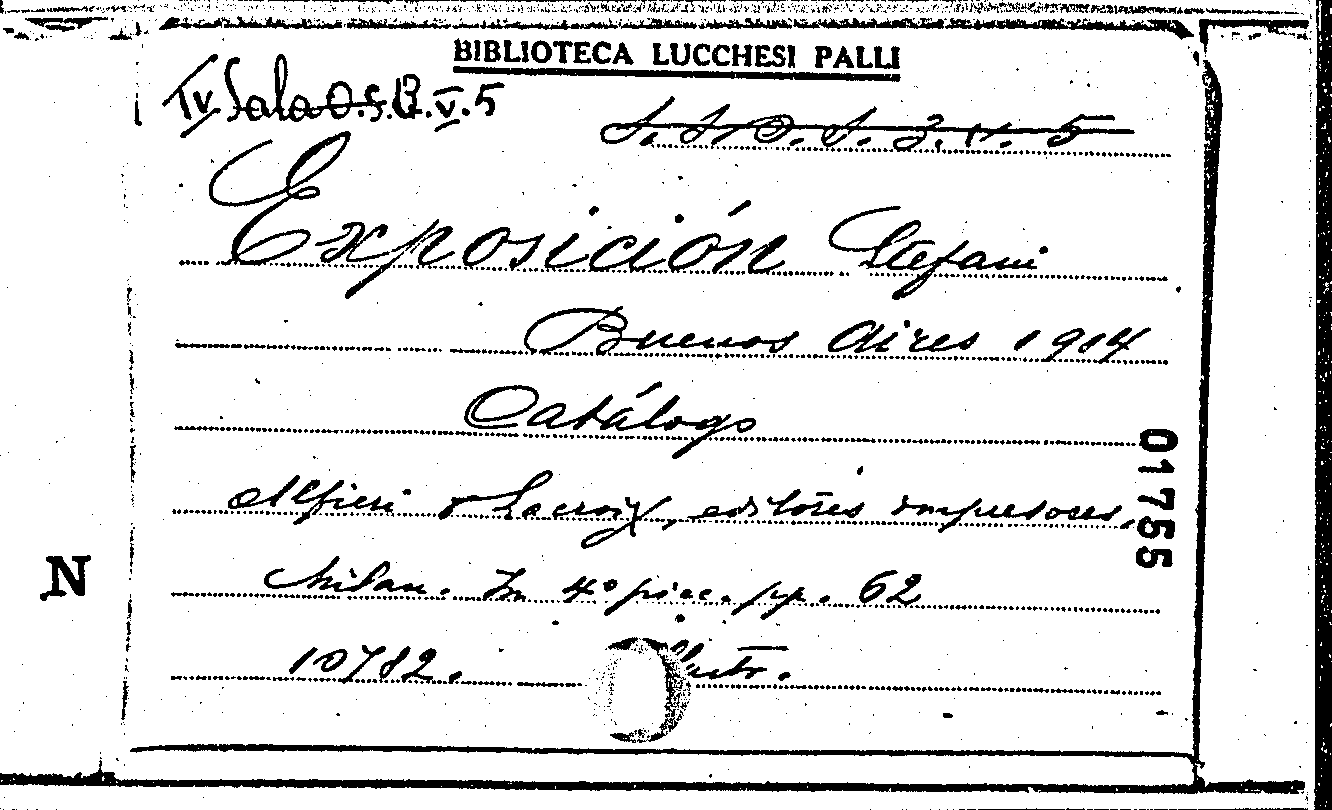 BIBLIOTECA LUCCHESI PALLI
IV Sala O.S.B.V.5
Exposición Stefani
Buenos Aires 1914
Catálogo
01755
Alfieri & Lacroix, editores impresores,
Milan. In 4º picc. pp. 62
N
10782. illustr.